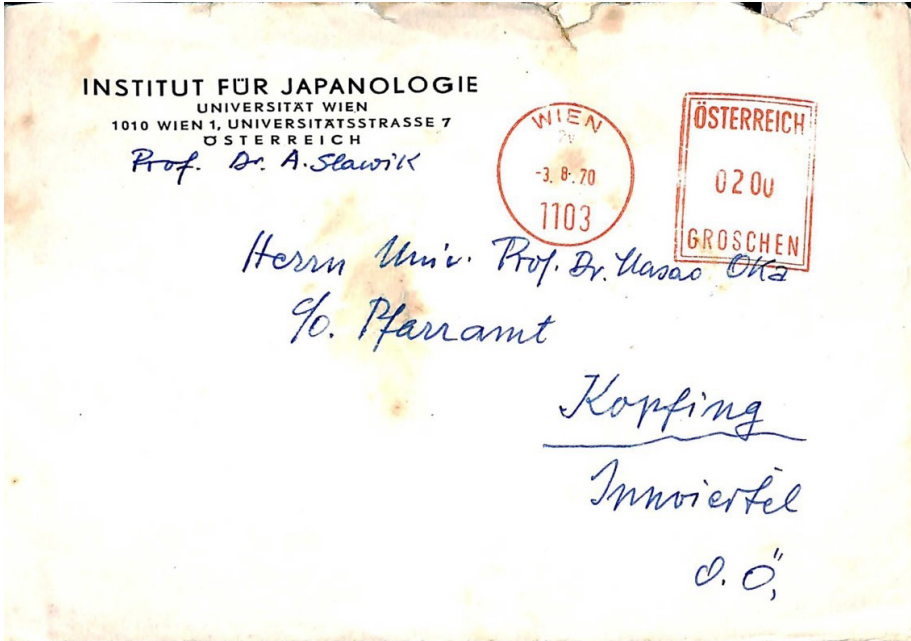 INSTITUT FÜR JAPANOLOGIE
UNIVERSITÄT WIEN
1010 WIEN 1, UNIVERSITÄTSSTRASSE 7
ÖSTERREICH
Prof. Dr. A. Slawik
WIEN
-3. 8. 70
1103
ÖSTERREICH
0200
GROSCHEN
Herrn Univ. Prof. Dr. Masao Oka
c/o. Pfarramt
Kopfing
Innviertel
O.Ö.